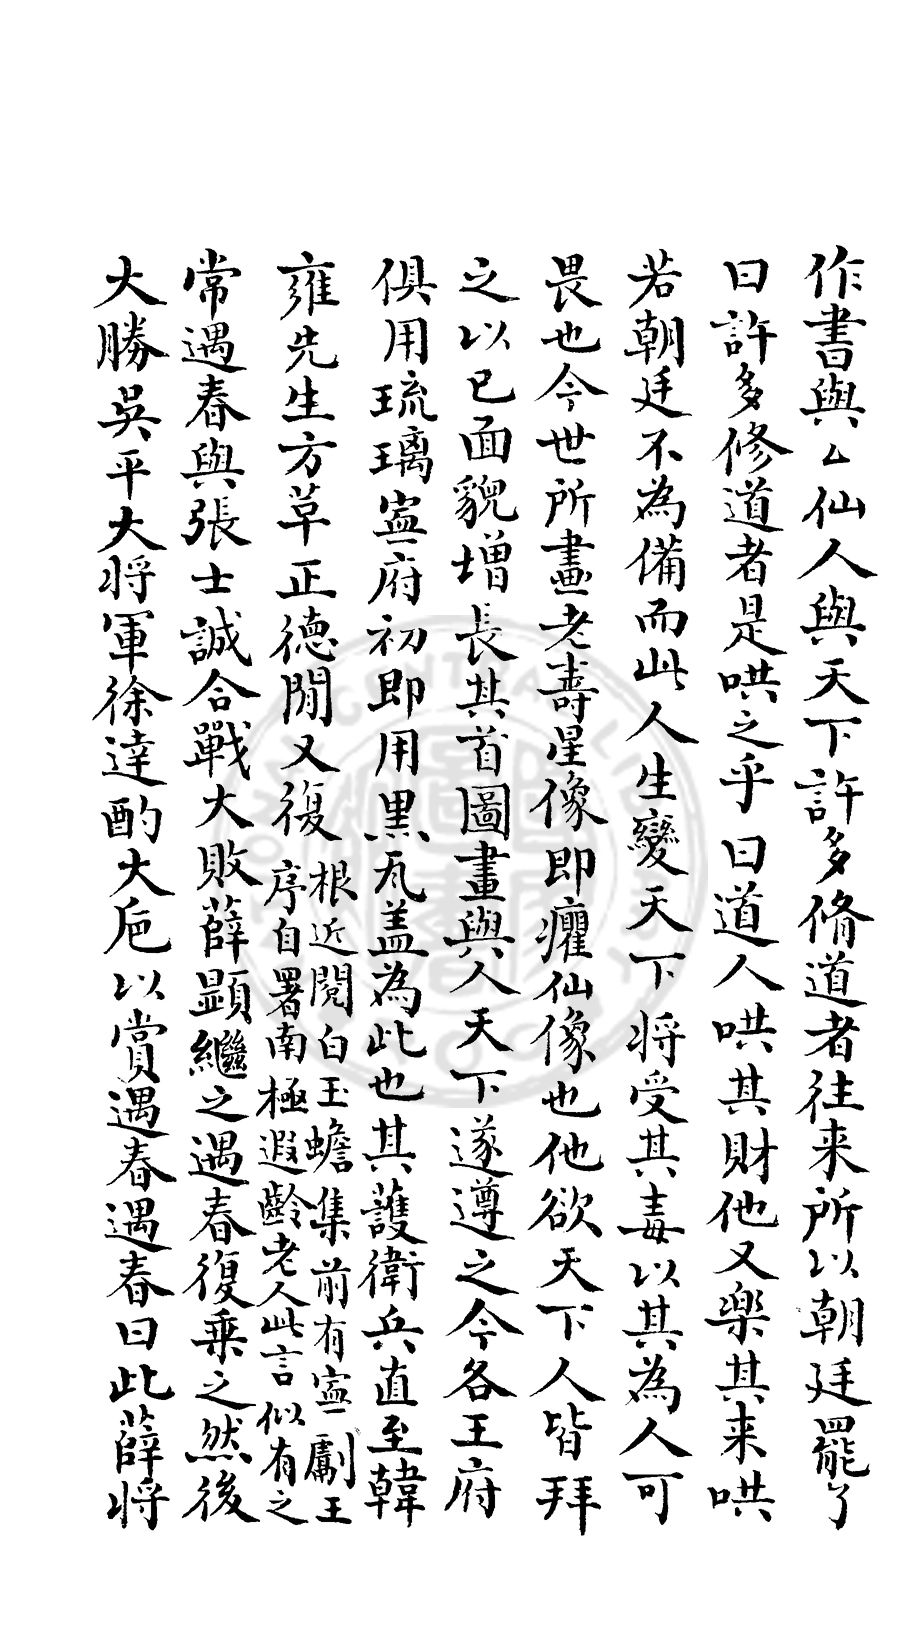 作書與厶仙人與天下許多脩道者往来所以朝廷罷了
曰許多修道者是哄之乎曰道人哄其財他又樂其来哄
若朝廷不為備而此人生變天下将受其毒以其為人可
畏也今世所畫老壽星像即癯仙像也他欲天下人皆拜
之以已面貌增長其首圖畫與人天下遂遵之今各王府
俱用琉璃寍府初即用黒瓦盖為此也其護衛兵直至韓
雍先生方草正德間又復
根近閱白玉蟾集前有寍獻王
序自署南極遐齡老人此言似有之
常遇春與張士誠合戰大敗薛顕繼之遇春復乗之然後
大勝吳平大将軍徐達酌大巵以賞遇春遇春曰此薛将
CENTRAL LIBRARY